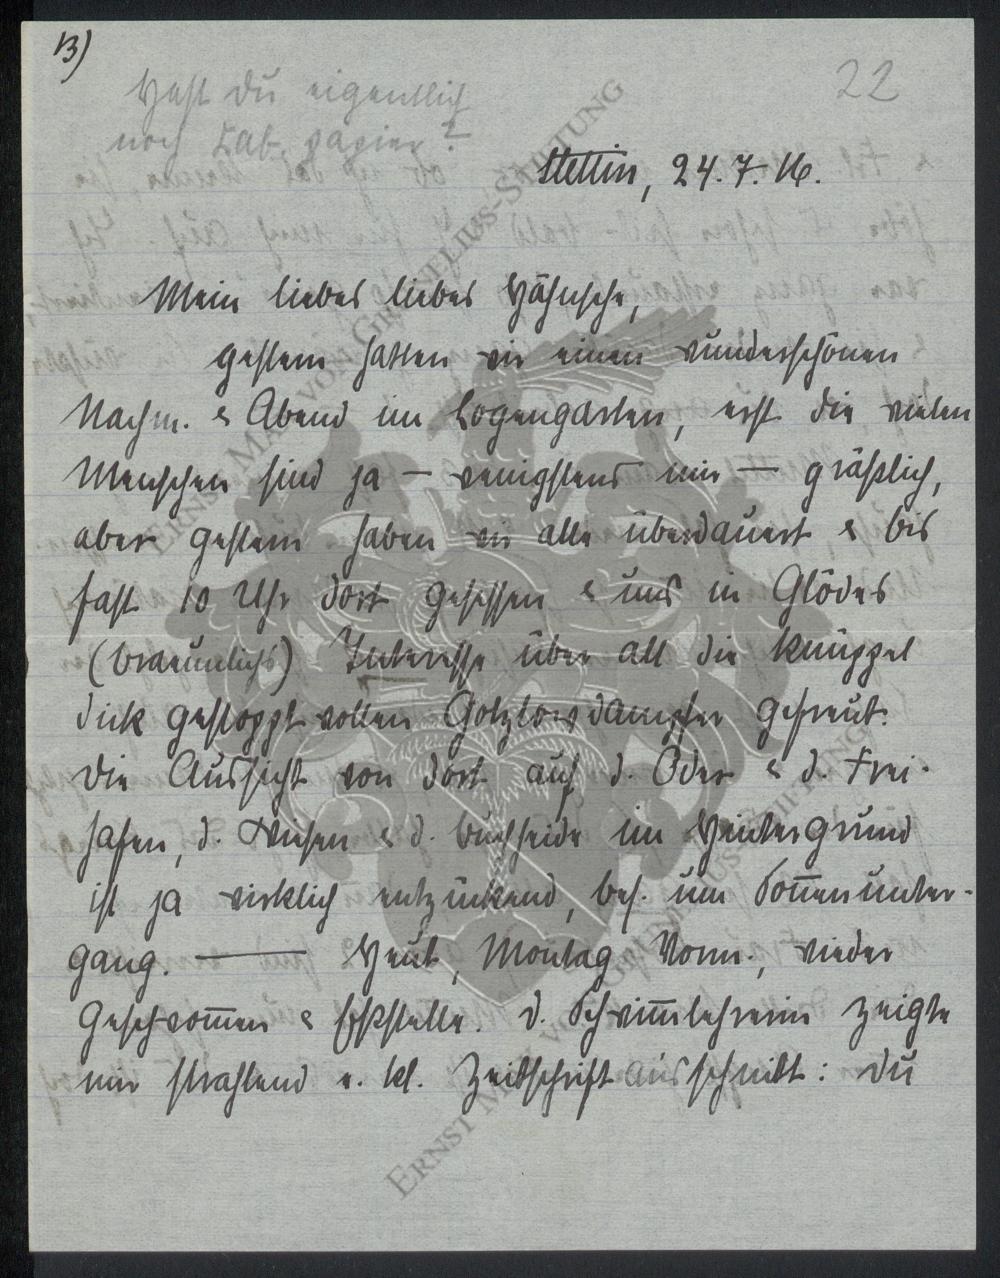 13)
22
Hast Du eigentlich
noch Tab. papier?
Stettin, 24.7.16.
Mein liebes liebes Hähnsche,
gestern hatten wir einen wunderschönen
Nachm. & Abend im Logengarten, erst die vielen
Menschen sind ja – wenigstens mir – gräßlich,
aber gestern haben wir alle überdauert & bis
fast 10 Uhr dort gesessen & uns in Glödes
(bräunlichs) Interesse über all die knüppel
dick gestoppt vollen Gotzlowdampfer gefreut.
Die Aussicht von dort auf d. Oder & d. Frei-
hafen, d. Wiesen & d. Buchheide im Hintergrund
ist ja wirklich entzückend, bes. um Sonnenunter-
gang. — Heut, Montag Vorm., wieder
Geschwommen & Eßstelle. D. Schwimmlehrerin zeigte
mir strahlend e. kl. Zeitschriftausschnitt: Du
ERNST MAX VON GRUMELIUS-STIFTUNG
ERNST MAX VON GRUMELIUS-STIFTUNG